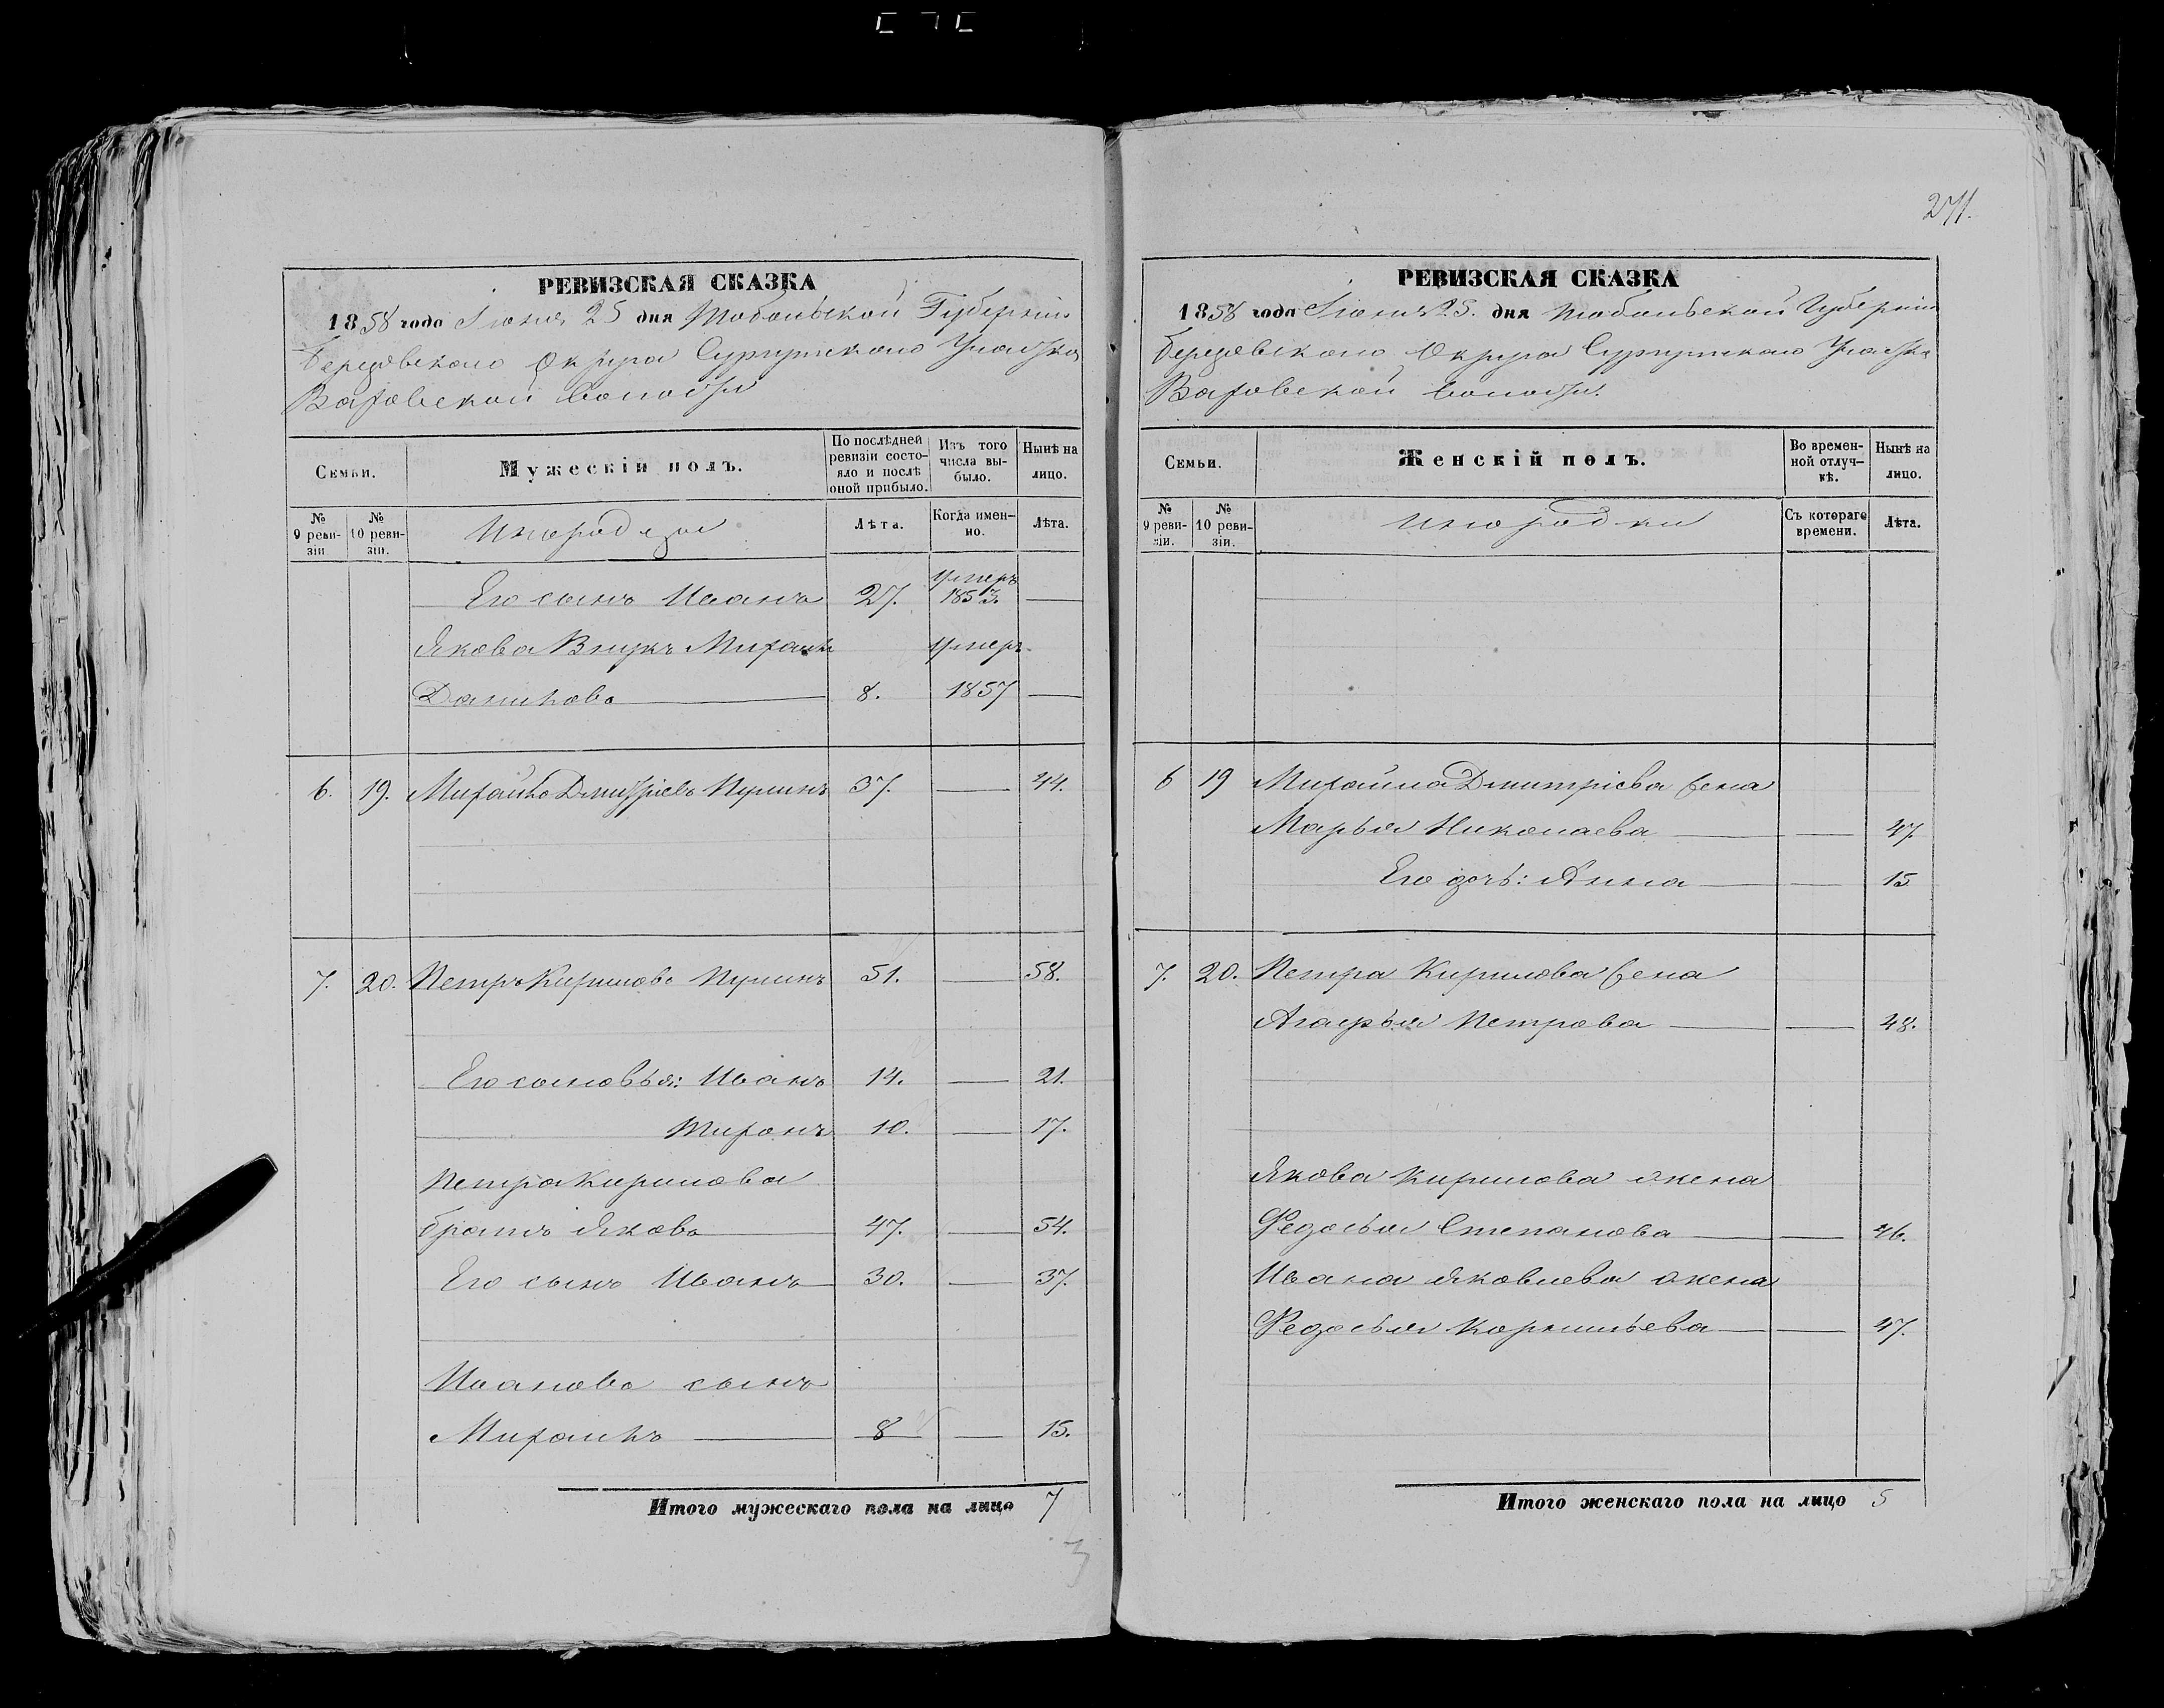 271.
РЕВИЗСКАЯ СКАЗКА
1858 года Іюня 25 дня Тобольской Губерніи
Березовскаго Округа Сургутскаго Участка
Ваховской волости
Семьи.
Мужескій полъ.
По послѣдней ревизіи состояло и послѣ оной прибыло.
Изъ того числа выбыло.
Нынѣ на лицо.
№ 9 ревизіи.
№ 10 ревизіи.
Инородцы
Лѣта.
Когда именно.
Лѣта.
умеръ
Его сынъ Иванъ 27. 1853. —
Якова Внукъ Михаилъ умеръ
Даниловъ 8. 1857 —
6. 19. Михайло Дмитріевъ Пунинъ 37. — 44.
7. 20. Петръ Кириловъ Пунинъ 51. — 58.
Его сыновья: Иванъ 14. — 21.
Миронъ 10. — 17.
Петра Кирилова
братъ Яковъ 47. — 54.
Его сынъ Иванъ 30. — 37.
Ивановъ сынъ
Михаилъ 8 — 15.
Итого мужескаго пола на лицо 7
РЕВИЗСКАЯ СКАЗКА
1858 года Іюня 25. дня Тобольской Губерніи
Березовскаго Округа Сургутскаго Участка
Ваховской волости.
Семьи.
Женскій полъ.
Во временной отлучкѣ.
Нынѣ на лицо.
№ 9 ревизіи.
№ 10 ревизіи.
Инородки
Съ котораго времени.
Лѣта.
6 19 Михайла Дмитріева жена
Марья Николаева — 47
Его дочь: Анна — 15
7. 20. Петра Кирилова жена
Агафья Петрова — 48.
Якова Кирилова жена
Федосья Степанова — 46.
Ивана Яковлева жена
Федосья Корнильева — 47.
Итого женскаго пола на лицо 5